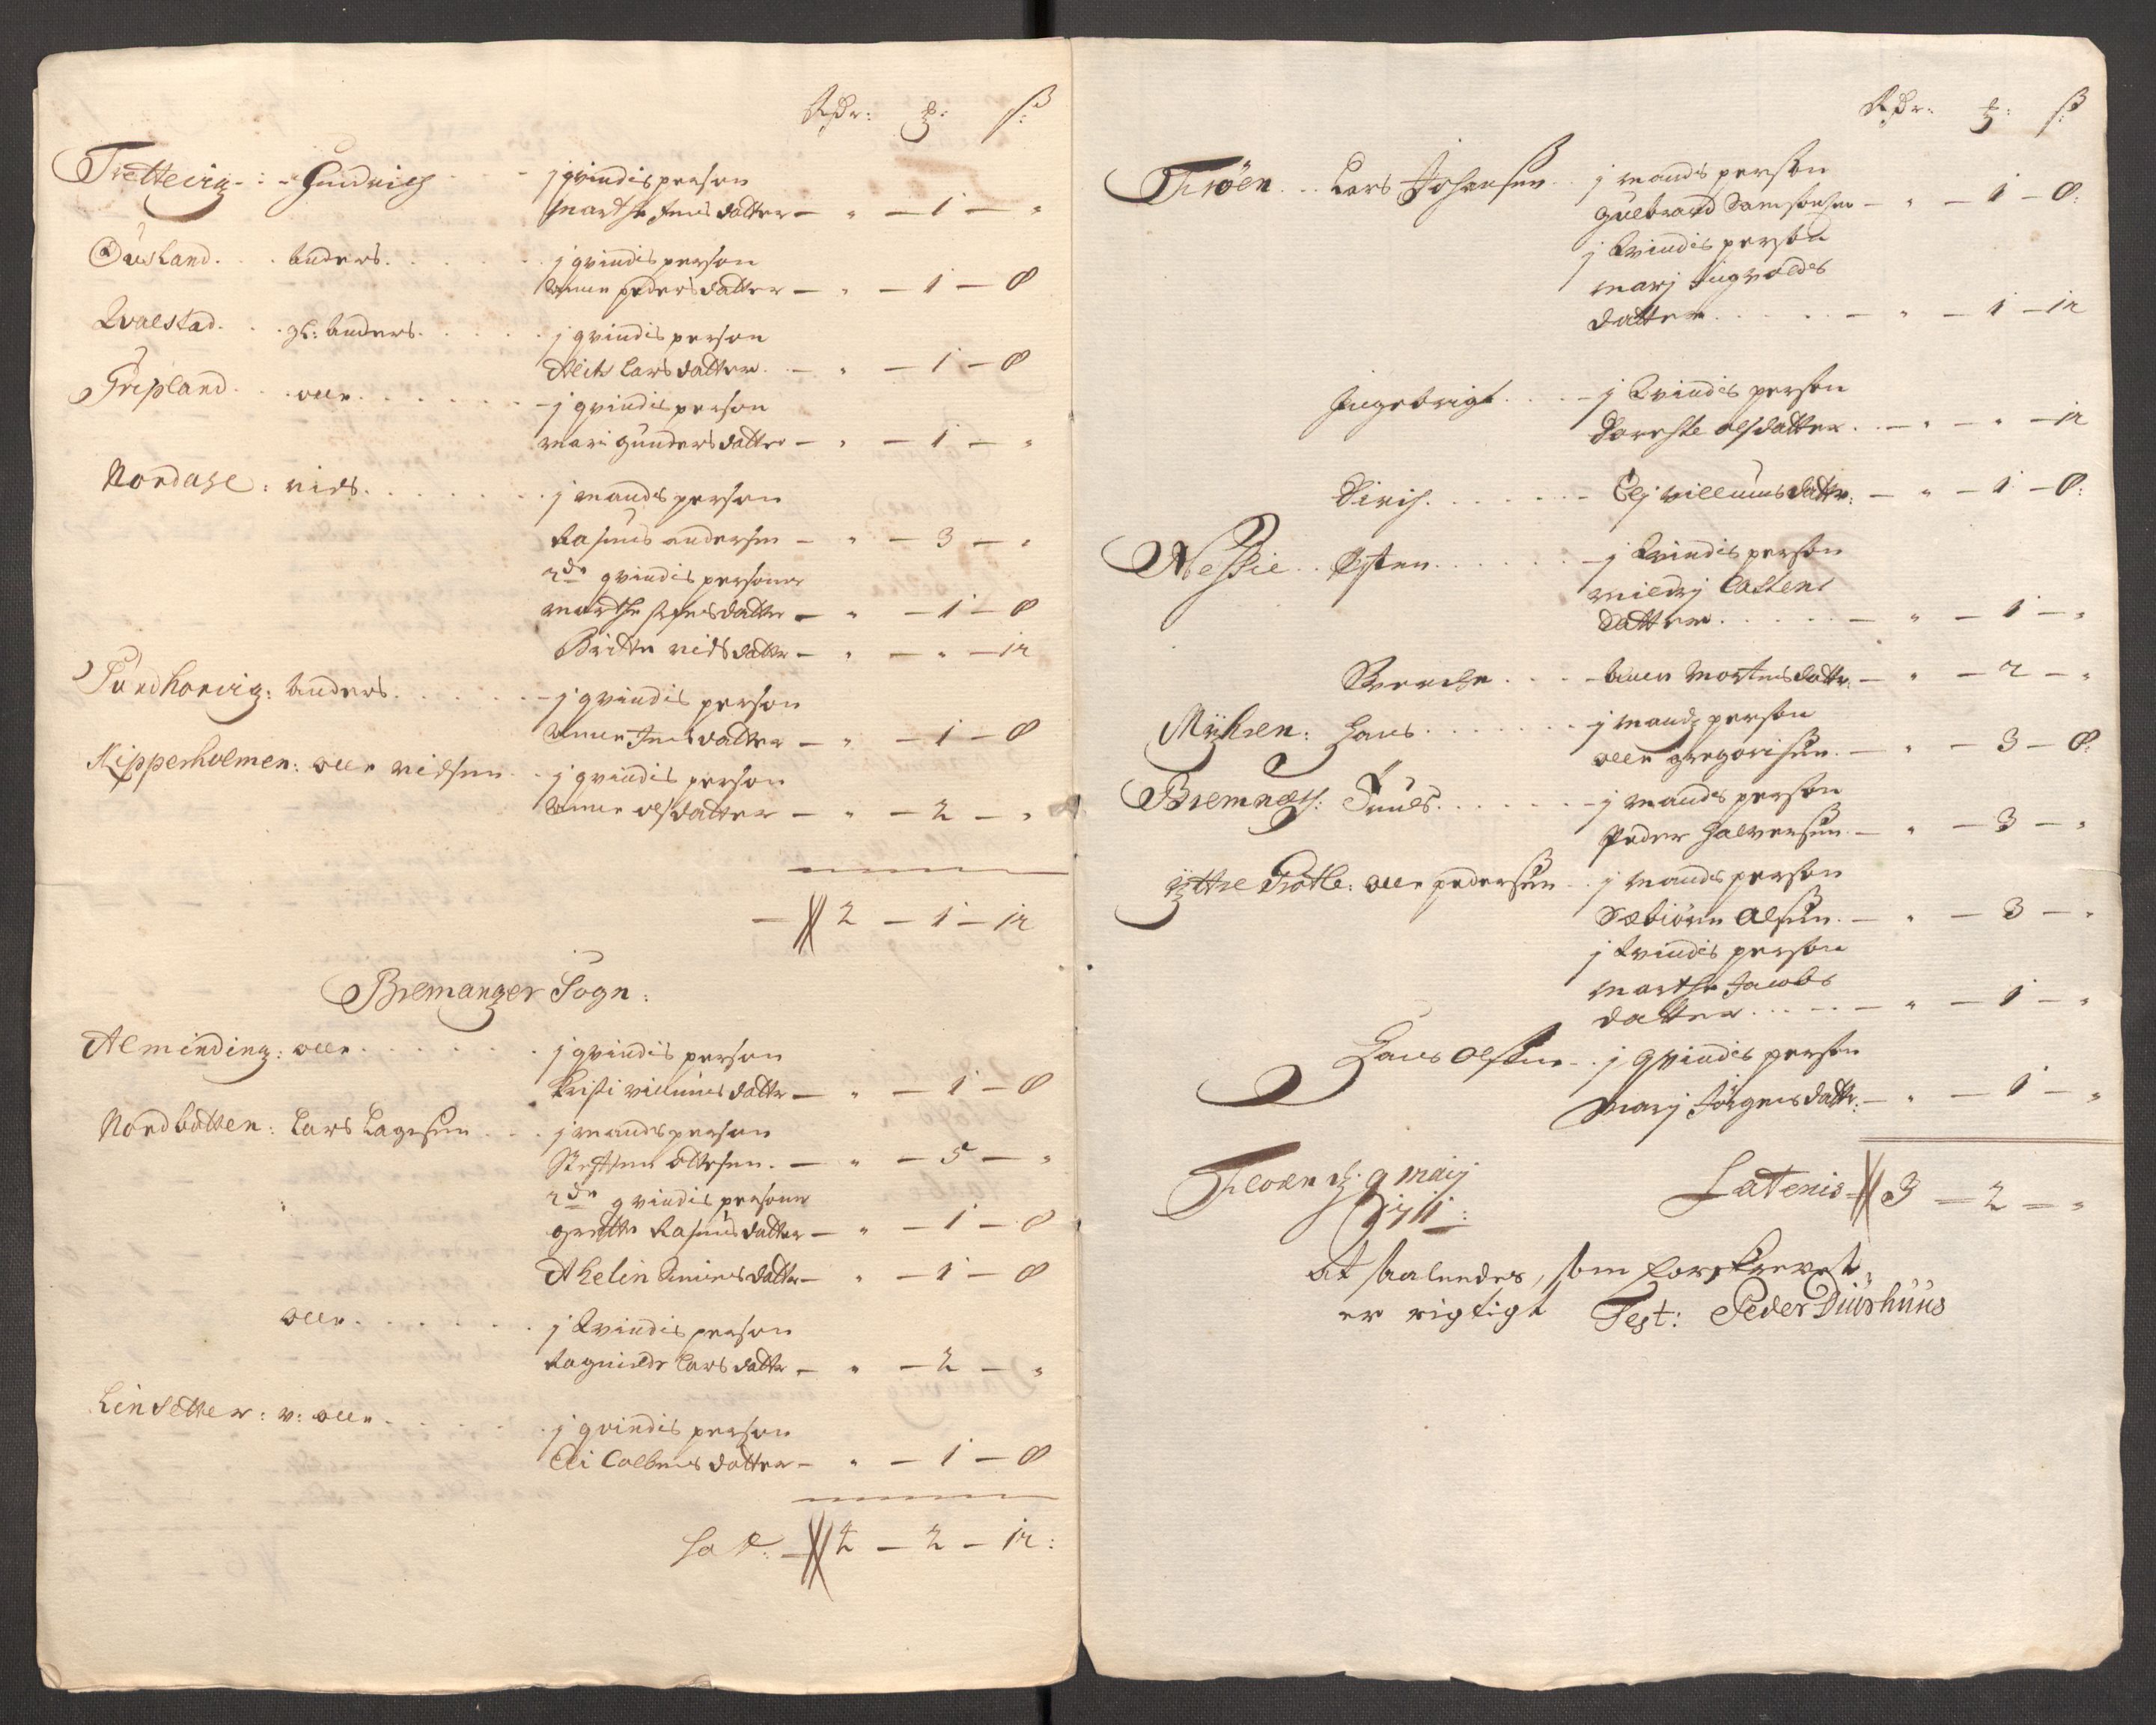 Rdr: ȝ: ß:
Tretteviig - : - Hendrich - - j qvindis person
Marthe Jensdatter - " - 1 - "
Ousland . . . Anders . . . . . . j qvindis person
Anne pedersdatter - " - 1 - 8
Qvalstad . . gl: Anders . . . . . j qvindis person
Alits Larsdatter - " - 1 - 8
Gripland . . . olle . . . . . . j qvindis person
mari gundersdatter - " - 1 - "
Nordahl : niels . . . . . . j mands person
Rasmus andersen - " - 3 - "
2de qvindis personer
marthe Jensdatter - " - 1 - 8
Britte nielsdatter - " - " - 12
: Anders . . . . . . j qvindis person
Anne Jensdatter - " - 1 - 8
Klipperholmen: olle nielsen . . j qvindis person
Anne olsdatter - " - 2 - "
- 2 - 1 - 12
Bremanger Sogn:
Alminding: olle . . . . . . j qvindis person
Kristi villumsdatter - " - 1 - 8
Nordbotten: Lars Lagesen . . . j mands person
Steffen ottesen . - " - 5 - "
2de qvindis personer
grethe Rasmusdatter - " - 1 - 8
Ahelin datter - " - 1 - 8
olle . . . . . . j kvindis person
Ragnilde Larsdatter - " - 2 - "
Linsetter: v: olle . . . . . j qvindis person
Eli datter - " - 1 - 8
Lat: - 2 - 2 - 12:
Rdr: ȝ: ß
Frøen . . Lars Johansen . . j mands person
gulbrand Samsonsen - " - 1 - 8:
j kvindis person
marj Jngvolds
datter . . . . - " - 1 - 12
Jngebrigt . . . . j kvindis person
Dorethe olsdatter . . - " - " - 12
Sirich . . . . . . Elj villumsdatter: - " - 1 - 8:
Nessie . . Østen . . . . . . j kvindis person
mildrj
datter . . . . . - " - 1 - "
Sverche . . . . Anne Mortensdatter: - " - 2 - "
Myhren: Hans . . . . . . j mands person
olle gregorisen . - " - 3 - 8:
Bremnæs: Truels . . . . . . j mands person
Peder Halversen . - " - 3 - "
ÿttre : olle pedersen . . j mands person
Sæbiørn Olsen . - " - 3 - "
j kvindis person
marthe Jacobs
datter . . . . - " - 1 - "
Hans Olsen . . j qvindis person
marj Jørgensdatter: - " - 1 - "
Floren d: 9 maij
1711:
Latenis - 3 - 2 - "
At saaledes, som forskrevet,
er rigtigt Test: Peder Duushuus